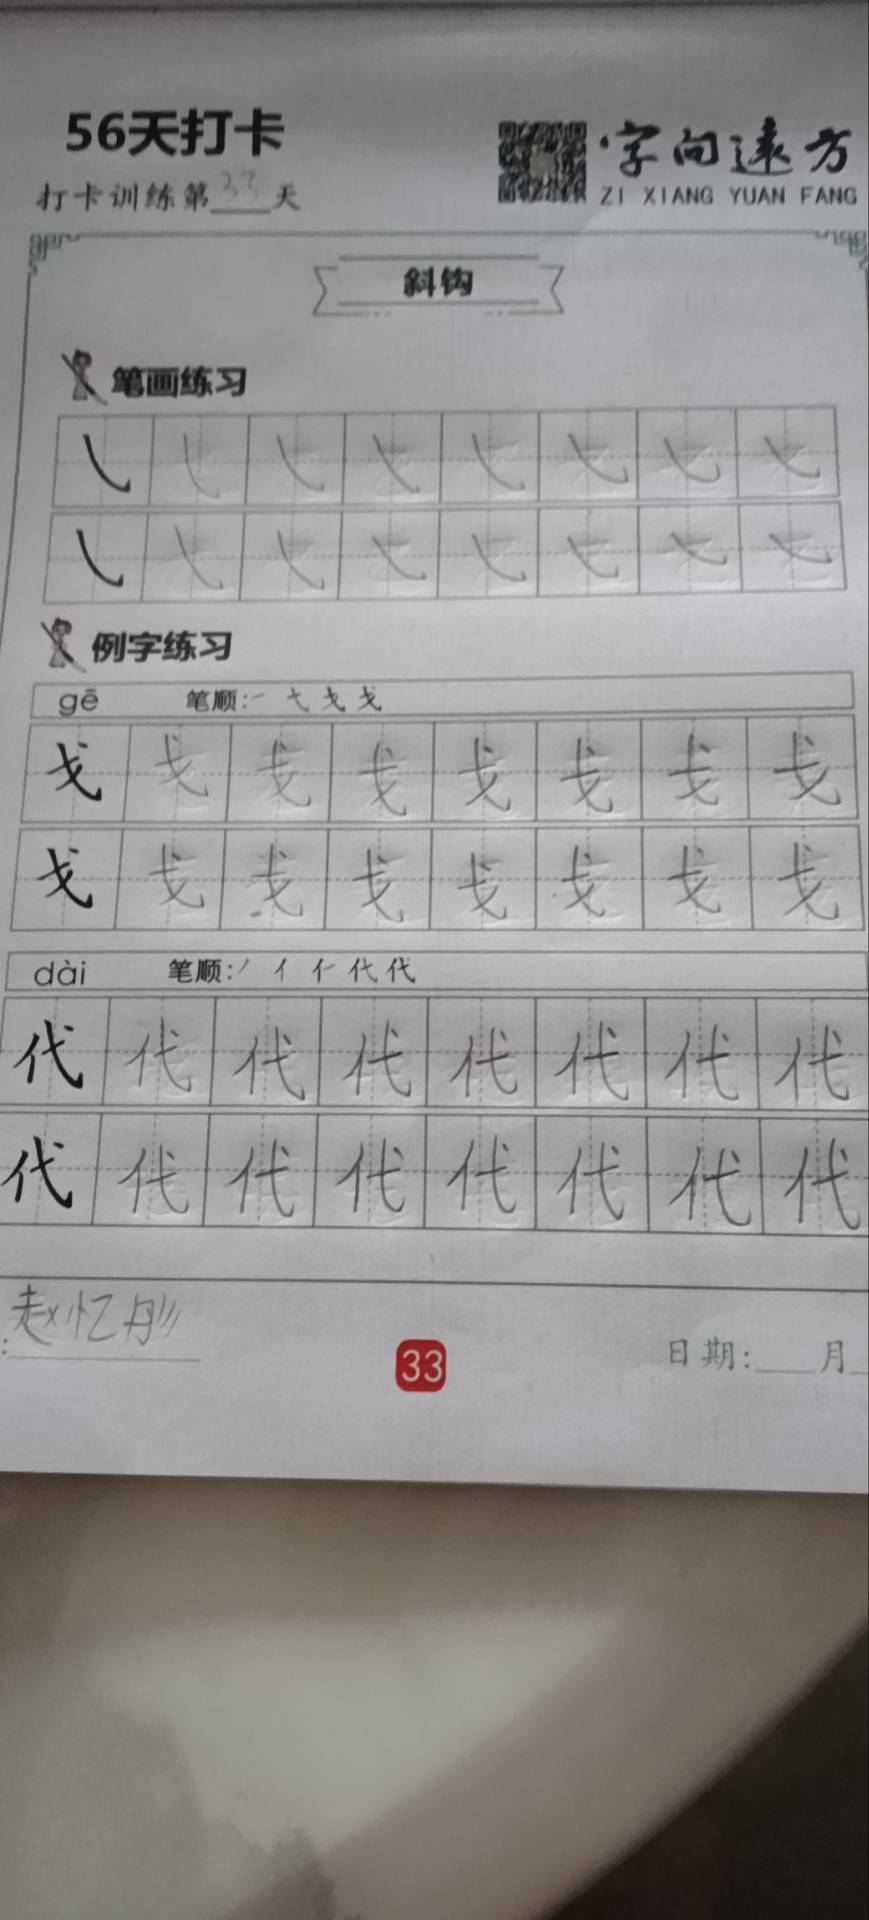 56天打卡
字向远方
打卡训练第33天
ZI XIANG YUAN FANG
斜钩
笔画练习
例字练习
gē 笔顺:
戈 戈 戈 戈 戈 戈 戈 戈
戈 戈 戈 戈 戈 戈 戈 戈
dài 笔顺:
代 代 代 代 代 代 代 代
代 代 代 代 代 代 代 代
赵忆彤
33
日期:___月